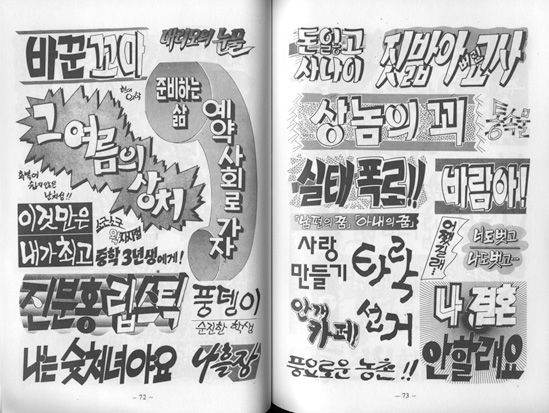 바꾼 꼬마
준비하는
삶
예약 사회로 가자
그 여름의
상처
이것만은
내가 최고
중학 3년생에게!
진분홍 립스틱
풍뎅이
순진한 학생
나는 숫처녀야요
- 72 -
돈 잃고
사나이
짓밟아
교사
상놈의 꾀
통속물
실태 폭로!!
「남편의 꿈」「아내의 꿈」
바람아!
어쩔길래
너도 벗고
나도 벗고…
사랑
만들기
타락
선거
안개
카페!
나 결혼
안할래요
풍요로운 농촌!!
- 73 -